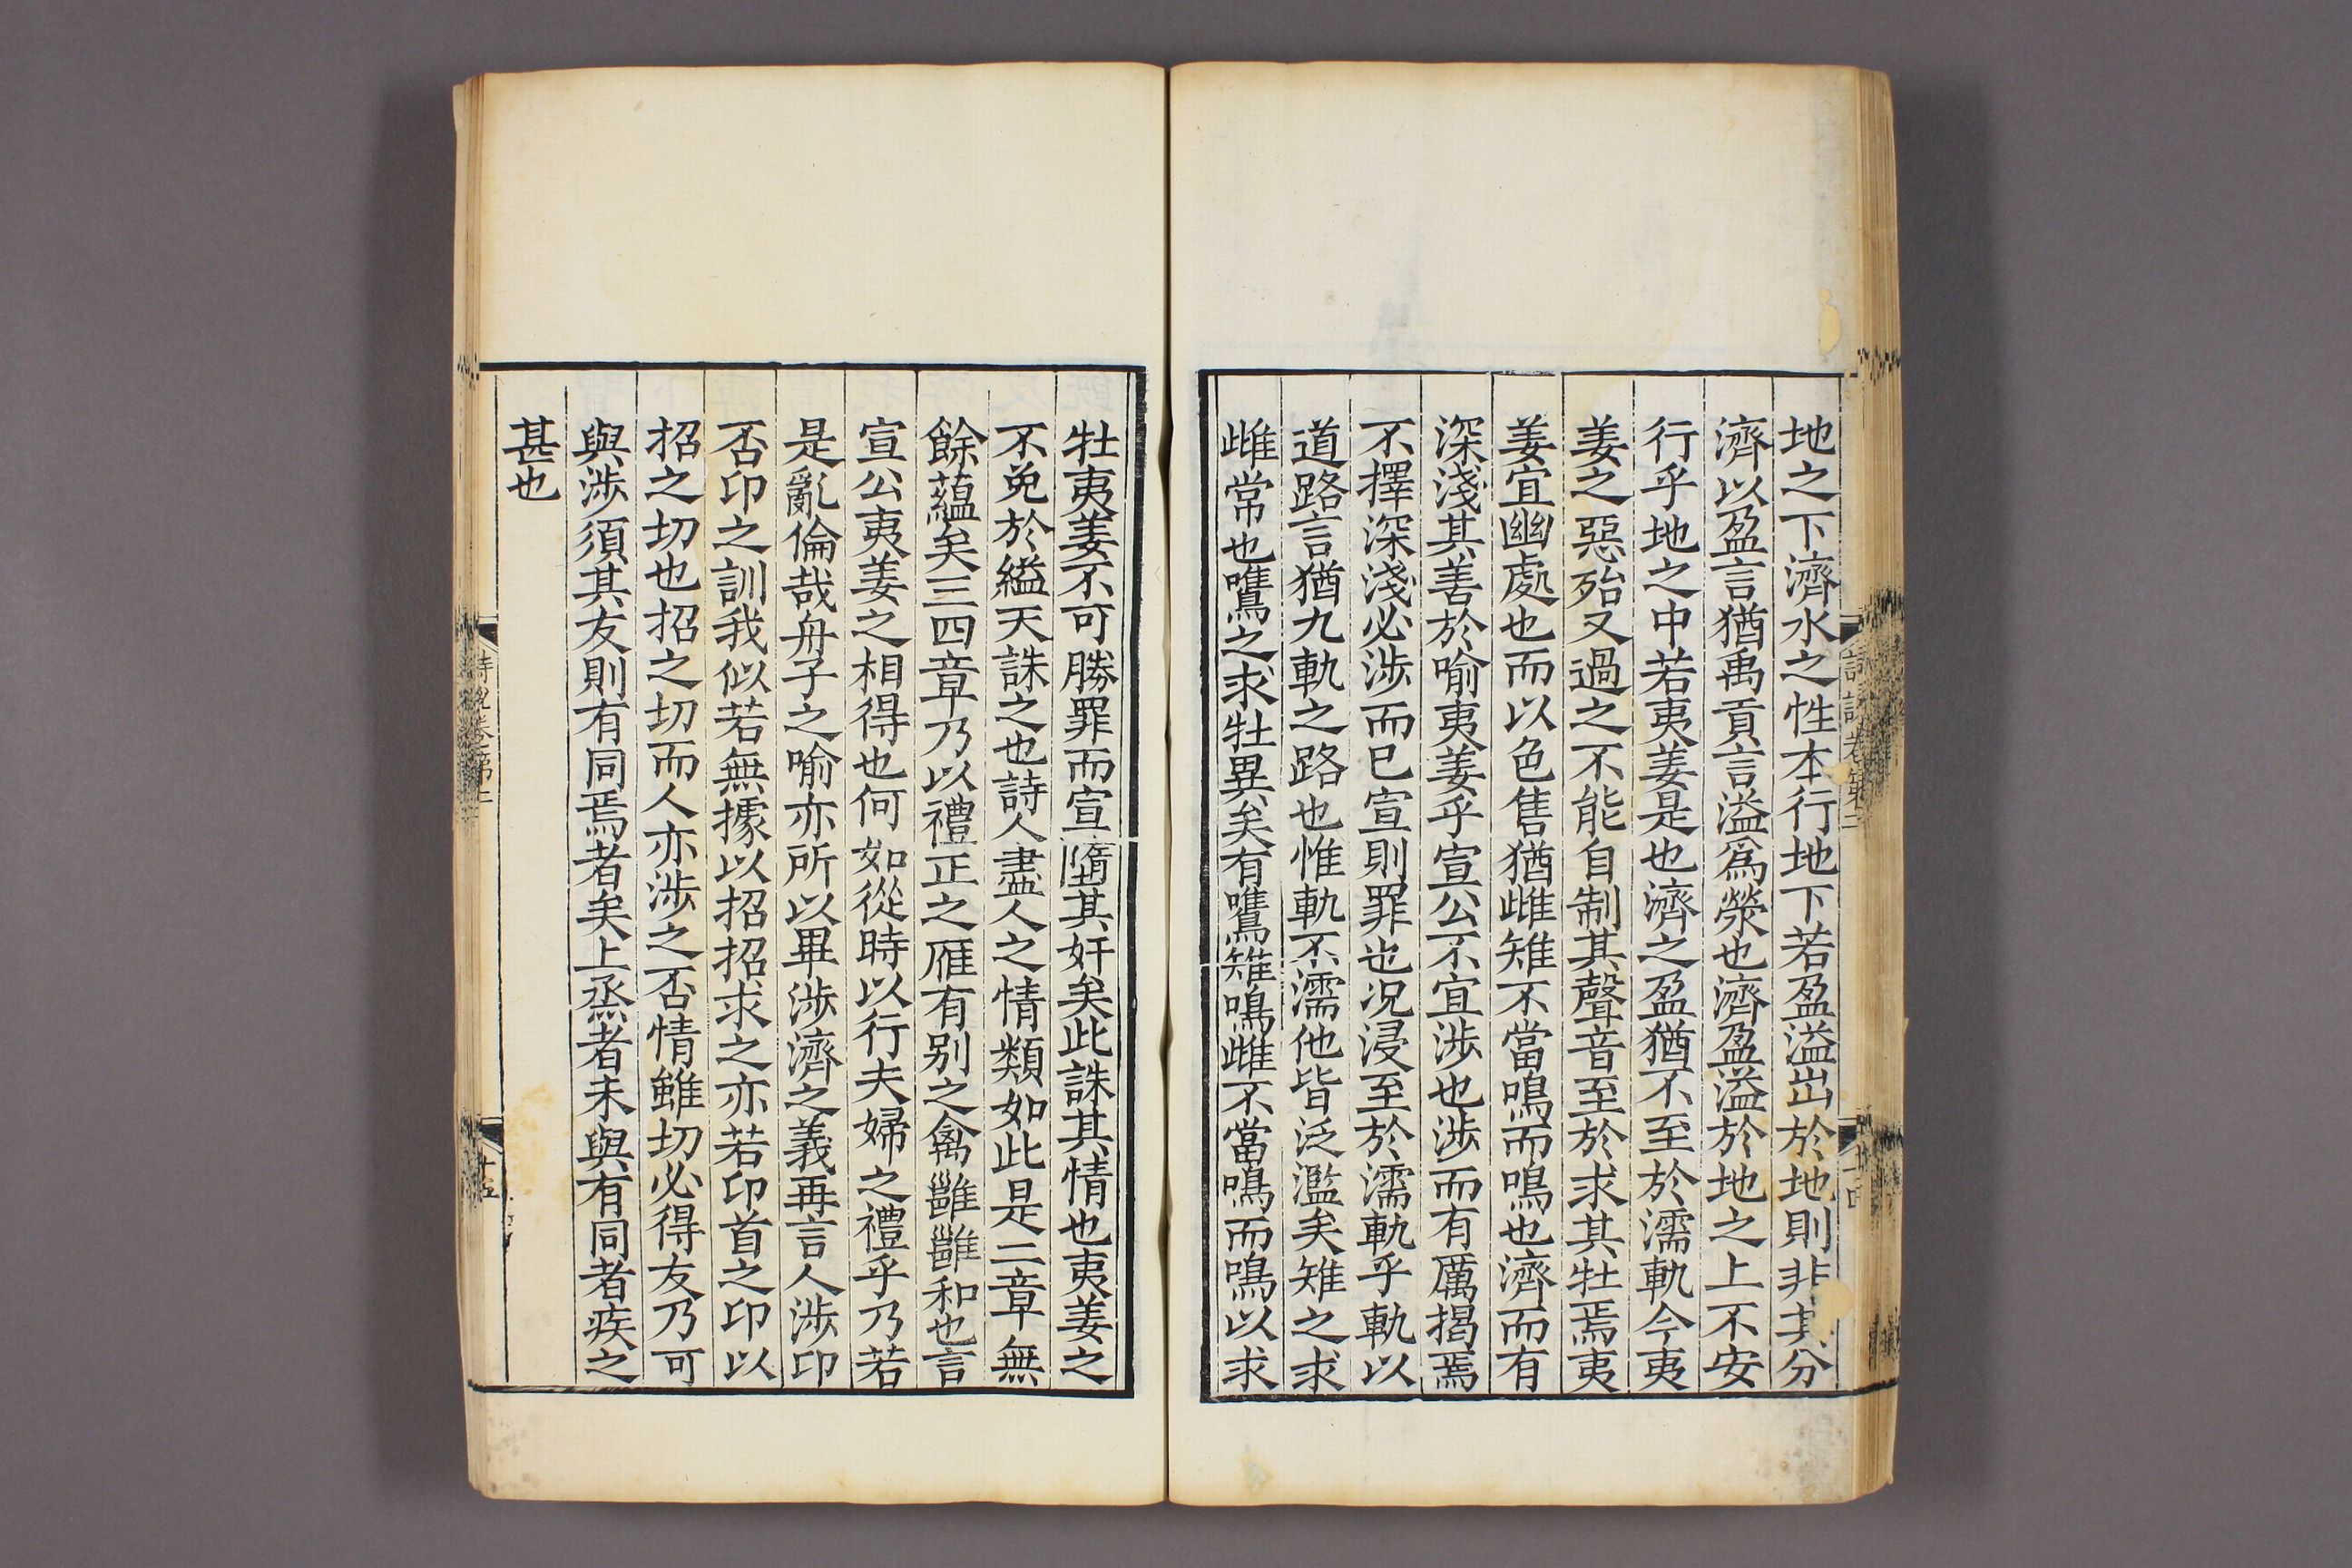 地之下濟水之性本行地下若盈溢出於地則非其分
濟以盈言猶禹貢言溢爲滎也濟盈溢於地之上不安
行乎地之中若夷姜是也濟之盈猶不至於濡軌今夷
姜之惡殆又過之不能自制其聲音至於求其牡焉夷
姜宜幽處也而以色售猶雌雉不當鳴而鳴也濟而有
深淺其善於喻夷姜乎宣公不宜涉也涉而有厲揭焉
不擇深淺必涉而已宣則罪也况浸至於濡軌乎軌以
道路言猶九軌之路也惟軌不濡他皆泛濫矣雉之求
雌常也鷕之求牡異矣有鷕雉鳴雌不當鳴而鳴以求
詩說卷第二
十四
牡夷姜不可勝罪而宣墮其奸矣此誅其情也夷姜之
不免於縊天誅之也詩人盡人之情類如此是二章無
餘蘊矣三四章乃以禮正之雁有别之禽雝雝和也言
宣公夷姜之相得也何如從時以行夫婦之禮乎乃若
是亂倫哉舟子之喻亦所以畢涉濟之義再言人涉卬
否卬之訓我似若無據以招招求之亦若卬首之卬以
招之切也招之切而人亦涉之否情雖切必得友乃可
與涉須其友則有同焉者矣上烝者未與有同者疾之
甚也
詩說卷第二
十五